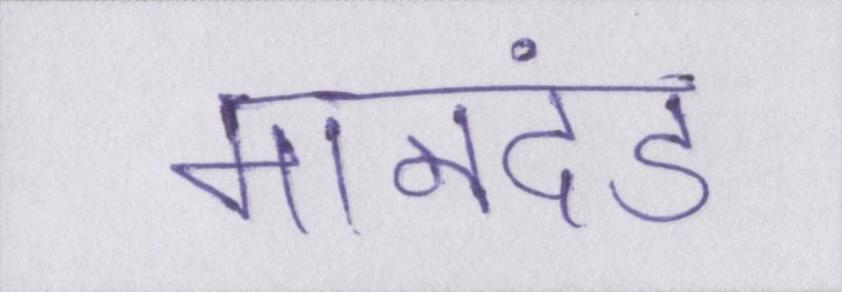 मानदंड